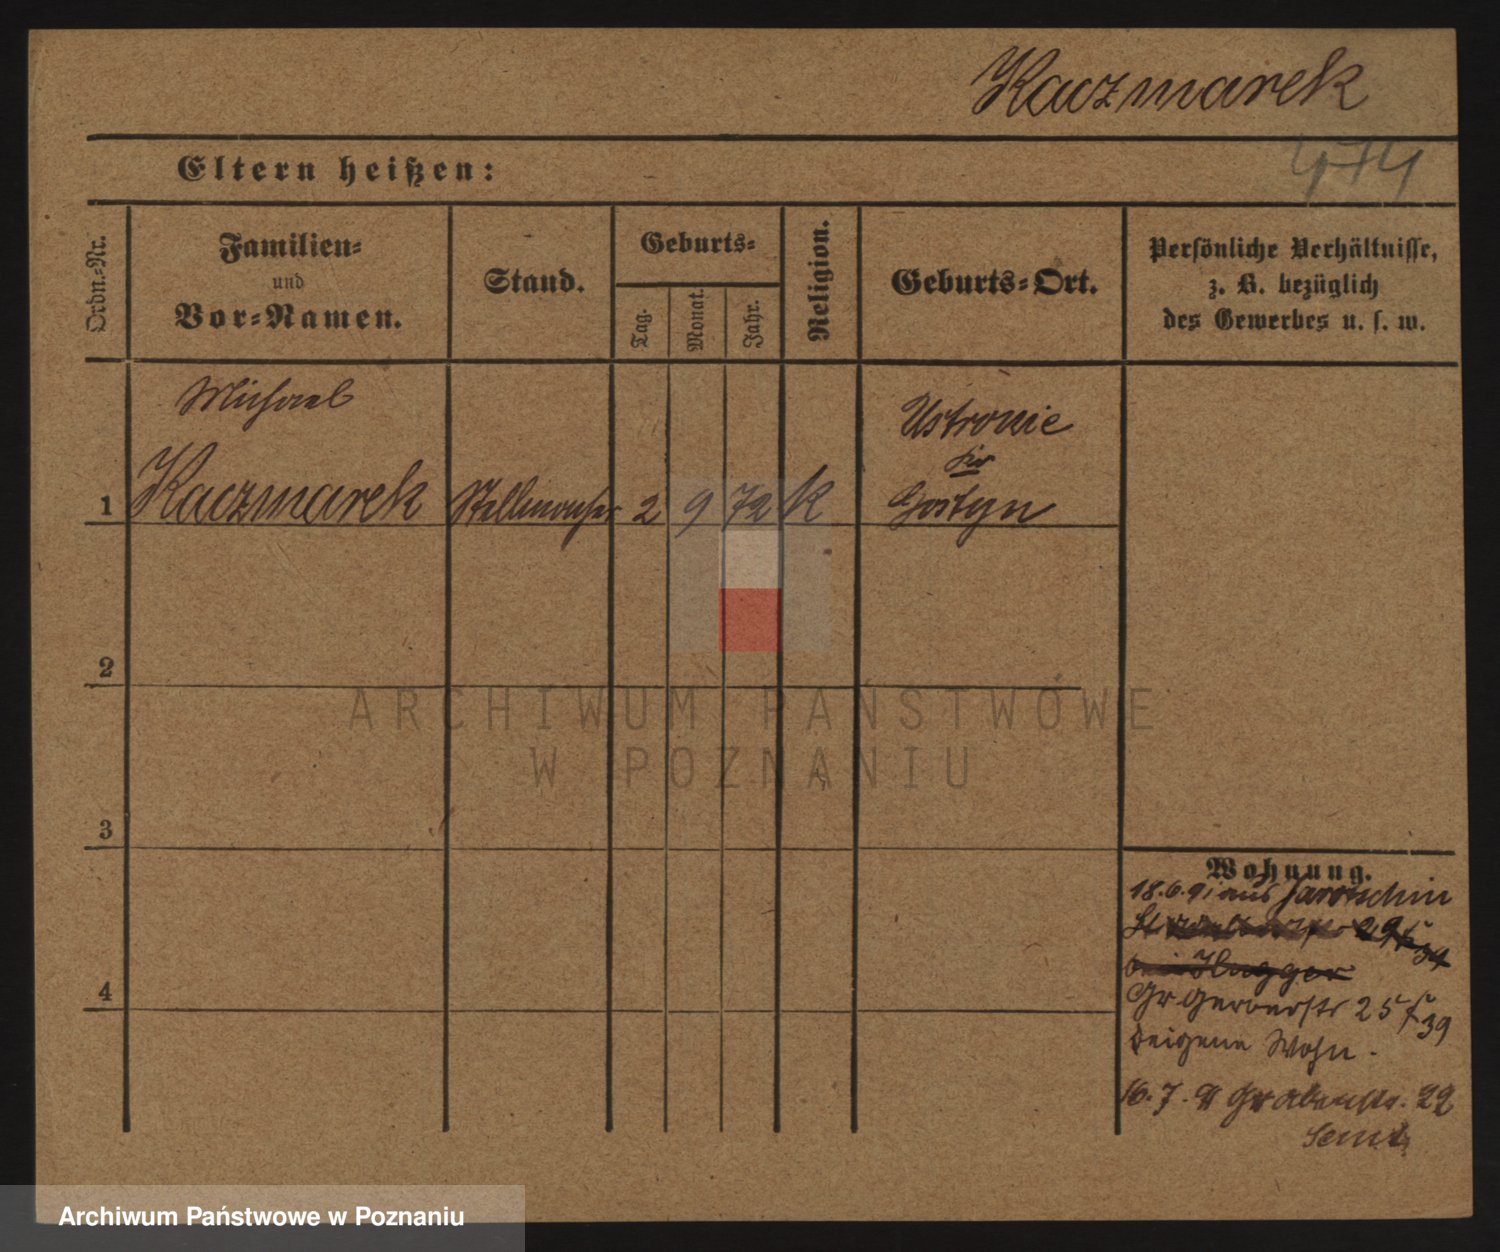 Kaczmarek
474
Eltern heißen:
Ordn.-Nr.
Familien-
und
Vor-Namen.
Stand.
Geburts-
Tag.
Monat.
Jahr.
Religion.
Geburts-Ort.
Persönliche Verhältnisse,
z. B. bezüglich
des Gewerbes u. s. w.
Michael
Ustronie
Kr
1 Kaczmarek Stellmacher 2 9 72 K Gostyn
2
ARCHIWUM PAŃSTWOWE
W POZNANIU
3
Wohnung.
18.6.91 aus Jarotschin
29
39
bei
4
Gr Gerberstr 25 39
eigene Wohn.
16.7. Grabenstr. 22
Archiwum Państwowe w Poznaniu